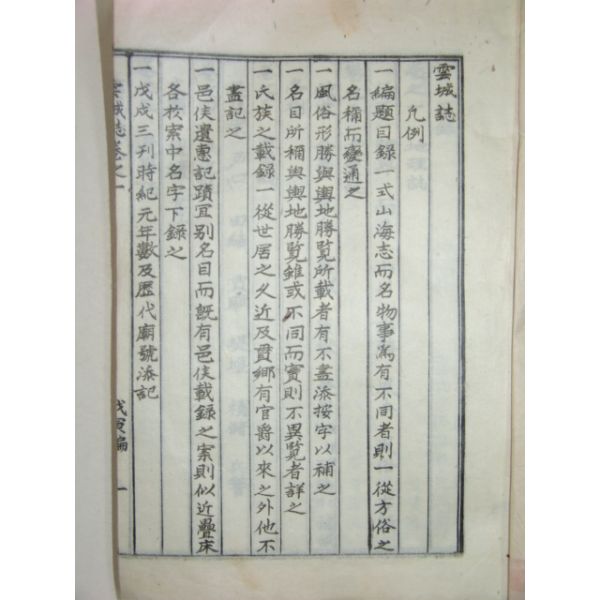 雲城誌
凡例
一編題目錄一式山海志而名物事爲有不同者則一從方俗之
名稱而變通之
一風俗形勝與輿地勝覽所載者有不盡添按字以補之
一名目所稱與輿地勝覽雖或不同而實則不異覽者詳之
一氏族之載錄一從世居之久近及貫鄉有官爵以來之外他不
盡記之
一邑侯遺惠記蹟宜別名目而旣有邑侯載錄之案則似近疊床
各於案中名字下錄之
一戊戌三刊時紀元年數及歷代廟號添記
雲城誌卷之一
戊寅編
一